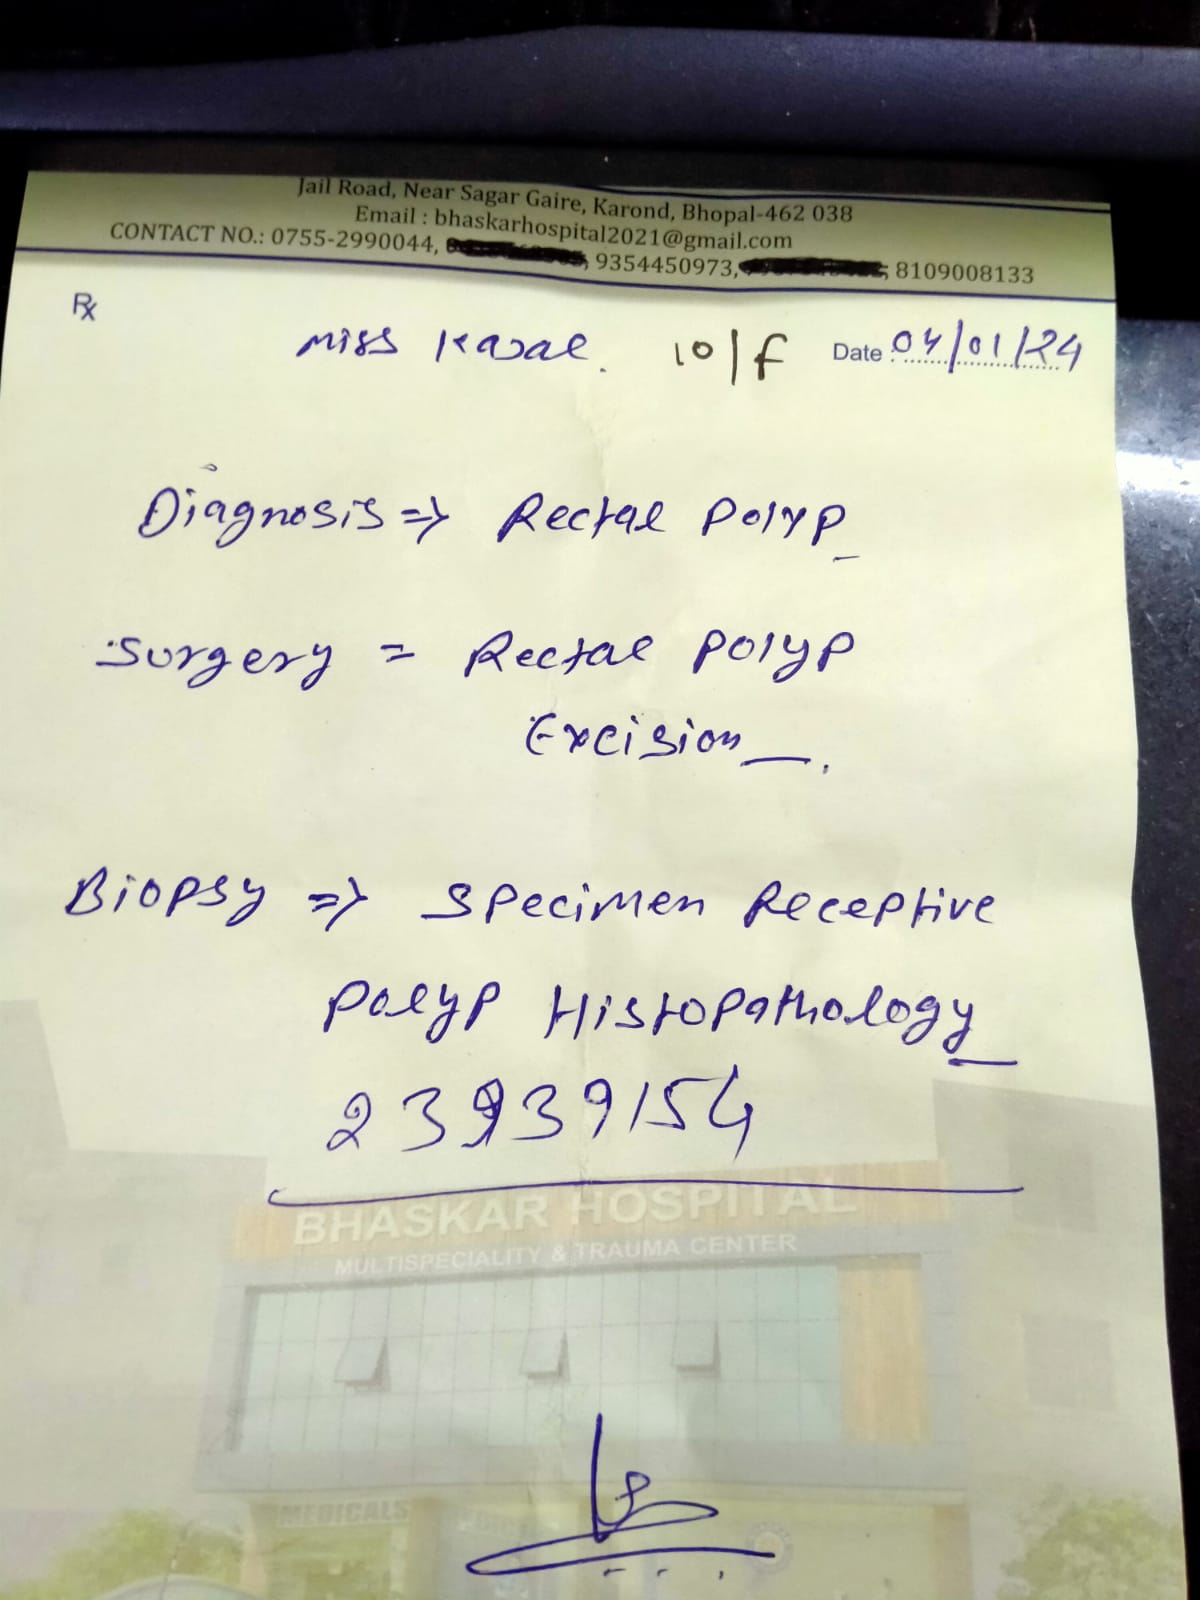 Jail Road, Near Sagar Gaire, Karond, Bhopal-462 038
Email : bhaskarhospital2021@gmail.com
CONTACT NO.: 0755-2990044, 9354450973, 8109008133
Rx
Miss Kajal. 10/F Date : 04/01/24
Diagnosis => Rectal Polyp
Surgery = Rectal Polyp
Excision
Biopsy => Specimen Receptive
Polyp Histopathology
23939154
BHASKAR HOSPITAL
MULTISPECIALITY & TRAUMA CENTER
MEDICALS